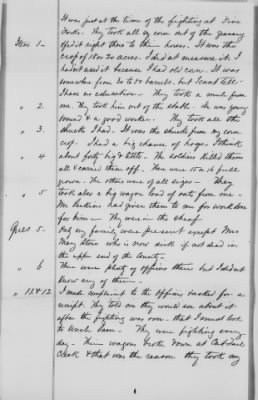 It was just at the time of the fighting at Five
Forks. They took all my corn out of the granary
Item 1 - & fed it right there to their horses. It was the
crop of 18 or 20 acres. I did not measure it. I
had not used it because I had old corn. It was
somewhere from 30 to 50 barrels, but I can't tell-
I have no education - They took a mule from
" 2 me. They took him out of the stable. He was young
sound & a good worker. They took all the
" 3. shucks I had. It was the shucks from my corn
crop. I had a big chance of hogs. I think
" 4 about forty big & little. The soldiers killed them
all & carried them off. There were 15 or 16 full
grown. The others were of all sizes - They
" 5. took also a big wagon load of oats from me -
Mr Perkins had given them to me for work done
for him - They were in the sheaf
Ques 5- All my family were present except Mrs
Mary Stone who is now sick if not dead in
the upper end of the County -
" 6 There were plenty of officers there but I did not
know any of them -
" 11 & 12 I made complaint to the officers & asked for a
receipt. They told me they would see about it
after the fighting was over - that I must look
to Uncle Sam - They were fighting every
day - Their wagons broke down at
Creek & that was the reason they took my